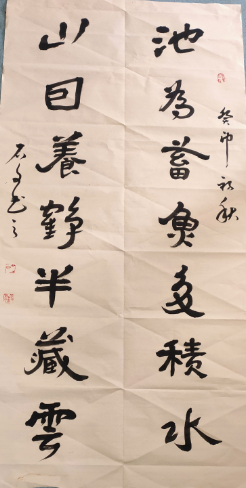 癸卯初秋
池為蓄魚多積水
山囙養鶴半藏雲